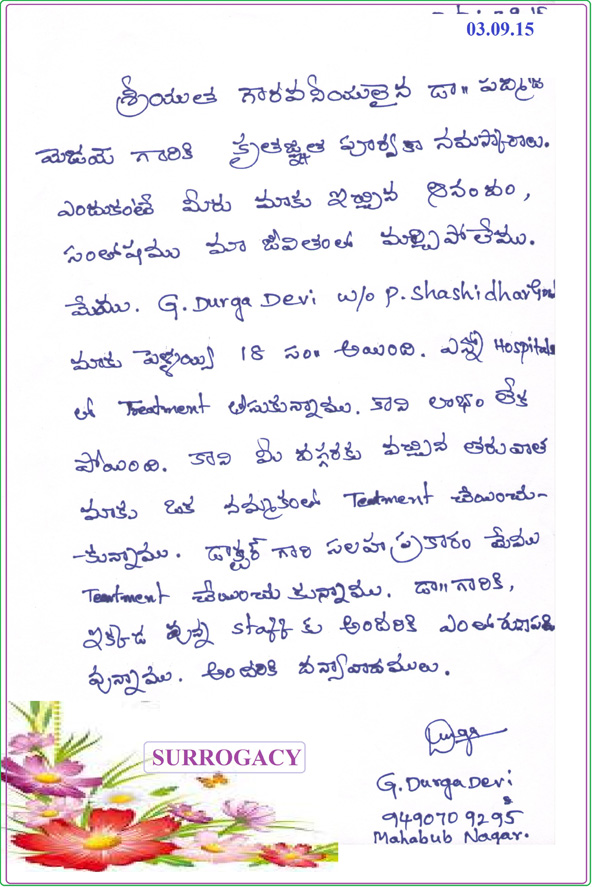 03.09.15
శ్రీయుత గౌరవనీయులైన డా॥ పద్మజ
మేడమ్ గారికి కృతజ్ఞత పూర్వకా నమస్కారాలు.
ఎందుకంటే మీరు మాకు ఇచ్చిన ఆనందం,
సంతోషము మా జీవితంలో మర్చిపోలేము.
మేము. G. Durga Devi w/o P. Shashidhar
మాకు పెళ్ళయ్యి 18 సం॥ అయింది. ఎన్నో Hospitals
లో Treatment తీసుకున్నాము. కాని లాభం లేక
పోయింది. కాని మీ దగ్గరకు వచ్చిన తరువాత
మాకు ఒక నమ్మకంలో Teatment చేయించు-
-కున్నాము. డాక్టర్ గారి సలహా ప్రకారం మేము
Teartment చేయించు కున్నాము. డా॥ గారికి,
ఇక్కడ వున్న staff కు అందరికి ఎంతో రుణపడి
వున్నాము. అందరికి దన్యావాదములు.
Durga
SURROGACY
G. Durga Devi
9490709295
Mahabub Nagar.